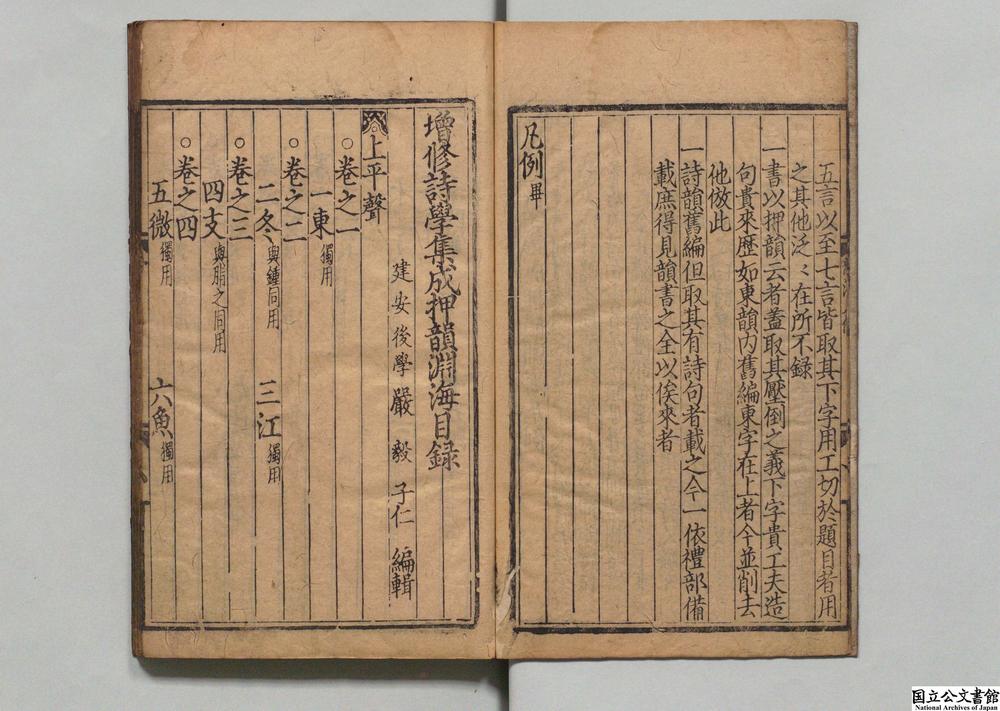 五言以至七言皆取其下字用工切於題目者用
之其他泛〻在所不録
一書以押韻云者蓋取其壓倒之義下字貴工夫造
句貴來歷如東韻内舊編東字在上者今並削去
他倣此
一詩韻舊編但取其有詩句者載之今一依禮部備
載庶得見韻書之全以俟來者
凡例畢
增修詩學集成押韻淵海目録
建安後學嚴毅子仁編輯
上平聲
○卷之一
一東獨用
○卷之二
二冬與鍾同用 三江獨用
○卷之三
四支與脂之同用
○卷之四
五微獨用 六魚獨用
国立公文書館
National Archives of Japan